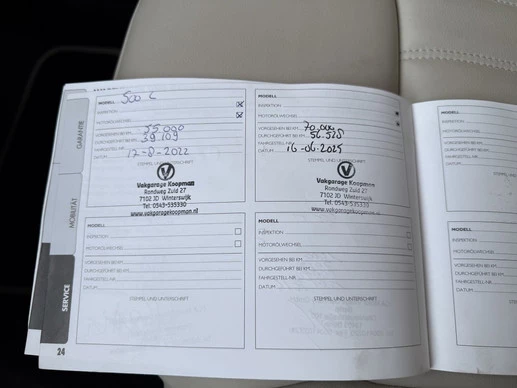 GARANTIE
MOBILITÄT
SERVICE
MODELL 500 C
INSPEKTION
MOTORÖLWECHSEL
VORGESEHEN BEI KM 55.000
DURCHGEFÜHRT BEI KM 39.109
FAHRGESTELL-NR.
DATUM 17-8-2022
STEMPEL UND UNTERSCHRIFT
V
Vakgarage Koopman
Rondweg Zuid 27
7102 JD Winterswijk
Tel. 0543-535330
www.vakgaragekoopman.nl
MODELL
INSPEKTION
MOTORÖLWECHSEL
VORGESEHEN BEI KM 70.000
DURCHGEFÜHRT BEI KM 56.525
FAHRGESTELL-NR.
DATUM 16-06-2025
STEMPEL UND UNTERSCHRIFT
V
Vakgarage Koopman
Rondweg Zuid 27
7102 JD Winterswijk
Tel. 0543-535330
www.vakgaragekoopman.nl
MODELL
INSPEKTION
MOTORÖLWECHSEL
VORGESEHEN BEI KM
DURCHGEFÜHRT BEI KM
FAHRGESTELL-NR.
DATUM
STEMPEL UND UNTERSCHRIFT
MODELL
INSPEKTION
MOTORÖLWECHSEL
VORGESEHEN BEI KM
DURCHGEFÜHRT BEI KM
FAHRGESTELL-NR.
DATUM
STEMPEL UND UNTERSCHRIFT
24
MODELL
INSPEKTION
MOTORÖLWECHSEL
VORGESEHEN
DURCHGEFÜHRT
FAHRGESTELL
DATUM
MODELL
INSPEKTION
MOTORÖLWECHSEL
VORGESEHEN
DURCHGEFÜHRT
FAHRGESTELL
DATUM